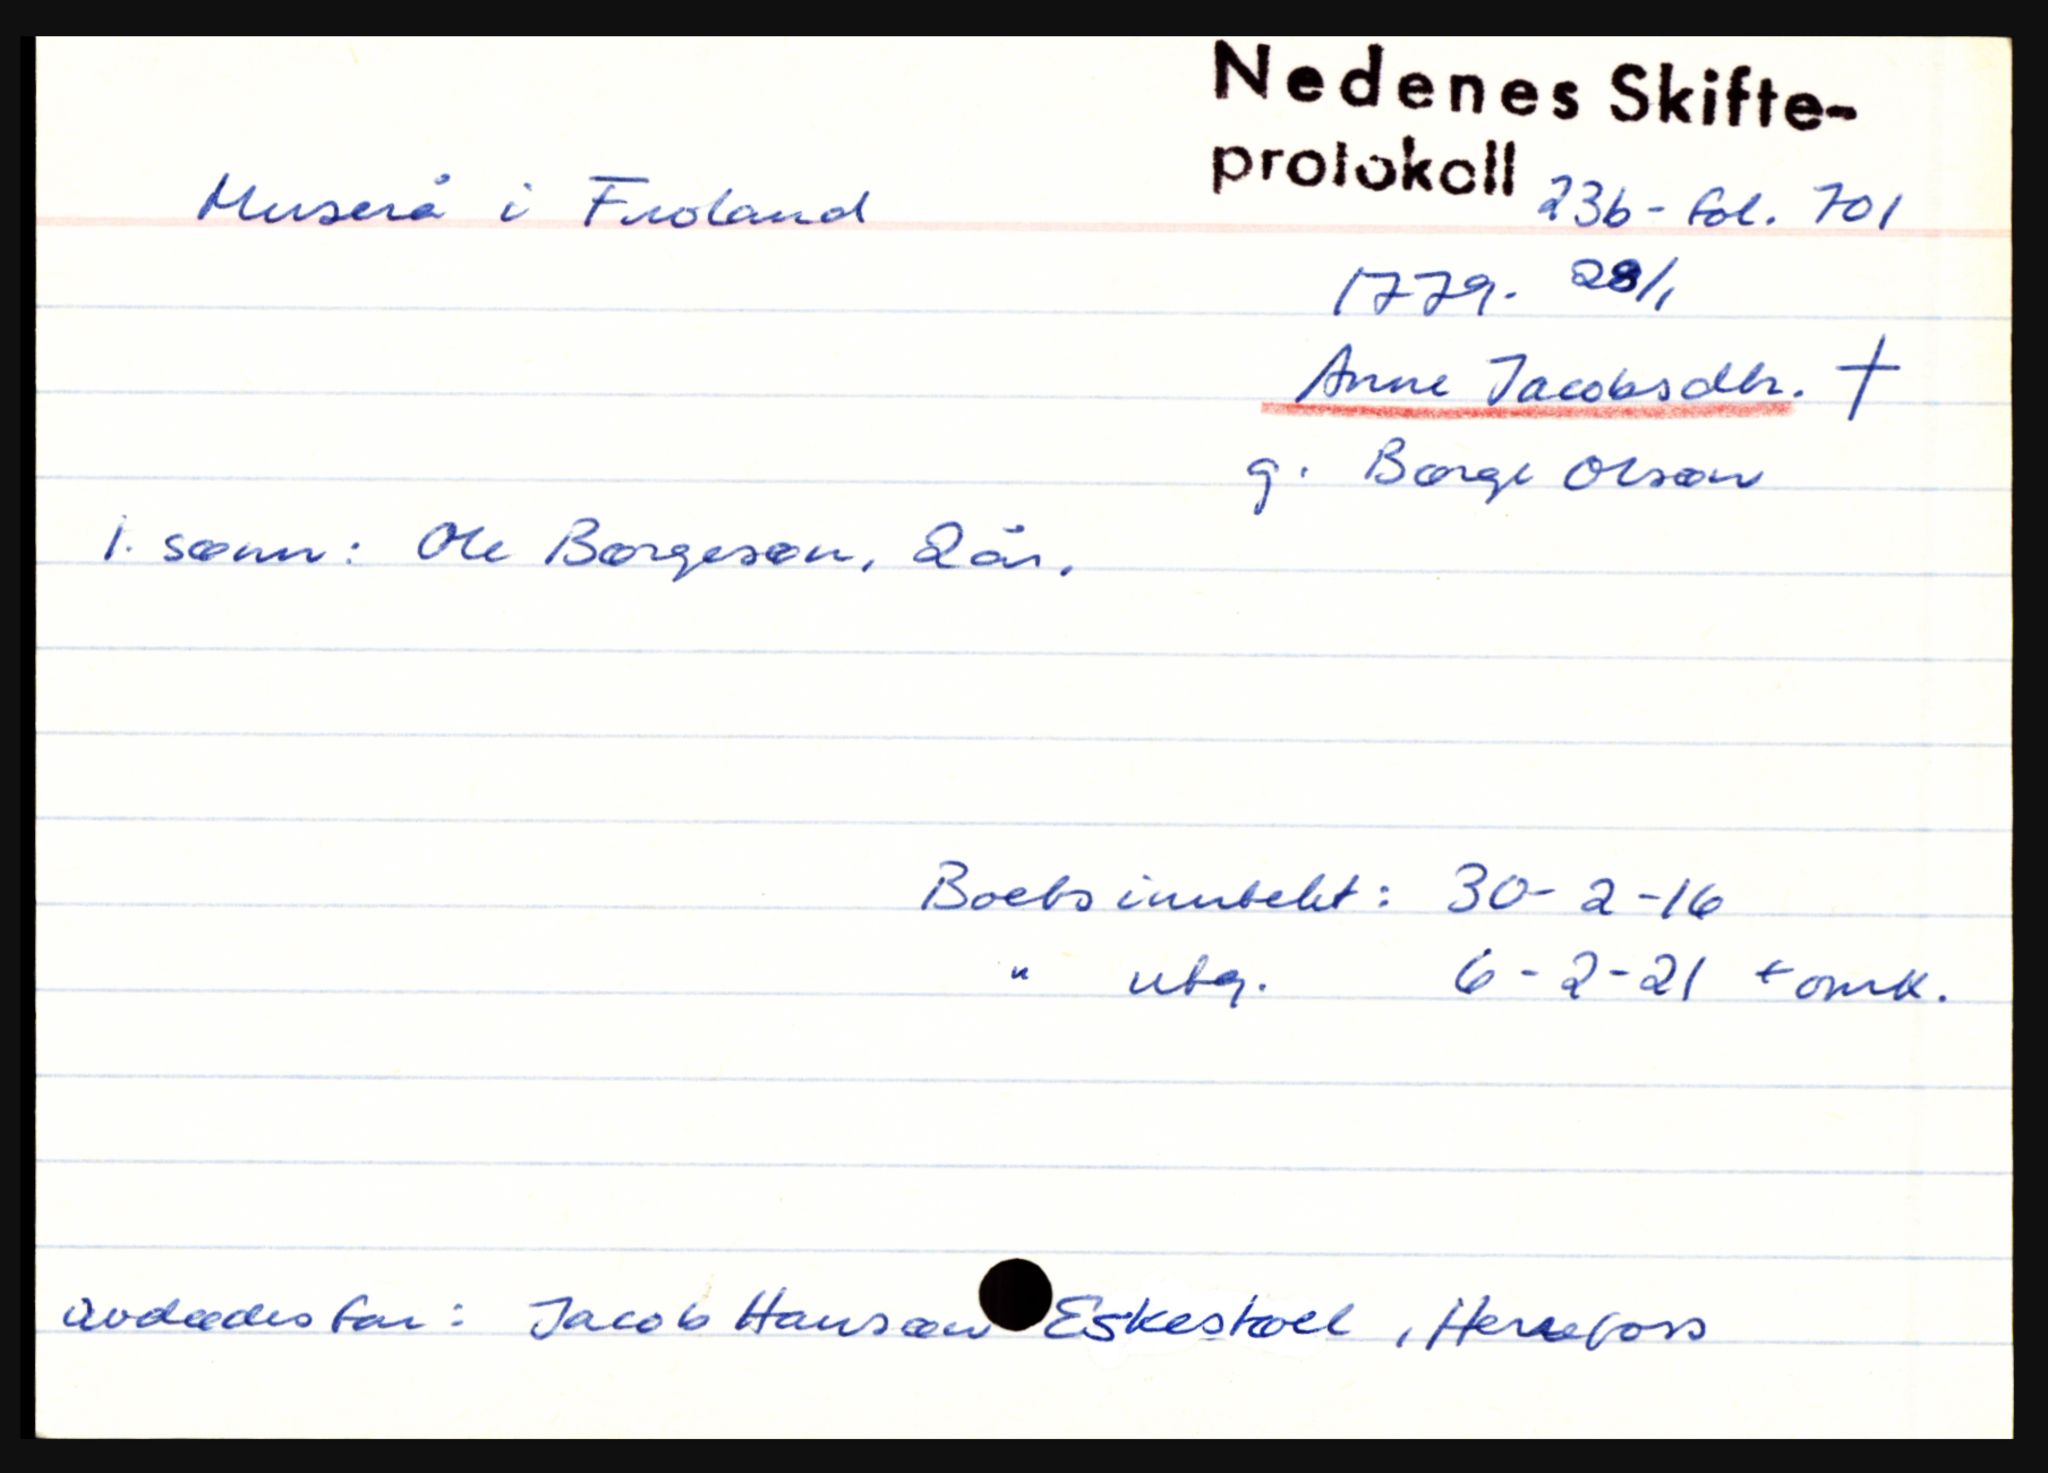 Nedenes Skifte-
protokoll 23b - fol. 701
Muserå i Froland
1779. 28/1
Anne Jacobsdtr. †
g. Børge Olsøn
1. sønn: Ole Børgesøn, 2 år.
Boets inntekt: 30 - 2 - 16
" utg. 6 - 2 - 21 + omk.
avdødes far: Jacob Hansøn Eskestøel, Herefoss